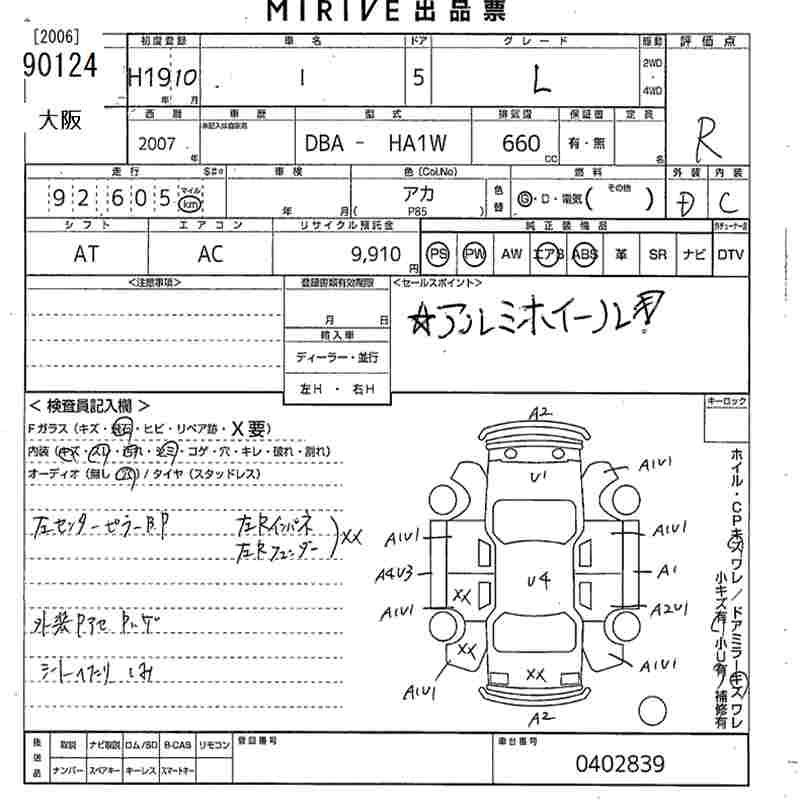 MIRIVE出品票
[2006]
90124
大阪
初度登録 車名 ドア グレード 駆動 評価点
H19 10 年 月 I 5 L 2WD 4WD R
西暦 車歴 型式 排気量 保証書 定員
2007 年 DBA - HA1W 660 CC 有・無 名
走行 車検 色(Col.No) 色替 燃料 外装 内装
92605 マイル km 年 月 アカ ( P85 ) G・D・電気( その他 ) D C
シフト エアコン リサイクル預託金 純正装備品
AT AC 9,910 円 PS PW AW エアB ABS 革 SR ナビ DTV
<注意事項> 登録書類有効期限 <セールスポイント>
月 日
☆アルミホイール!
輸入車
ディーラー・並行
左H ・ 右H
<検査員記入欄> キーロック
Fガラス(キズ・飛石・ヒビ・リペア跡・X要)
内装(キズ・スレ・汚れ・シミ・コゲ・穴・キレ・破れ・割れ)
オーディオ(無し・穴)/タイヤ(スタッドレス)
左センターピラーBP 左Rインパネ 左Rフェンダー XX
外装Pアセ Pハゲ
シートへたり しみ
A2
U1
A1U1
A1U1 A1U1
A4U3 U4 A1
XX
A1U1 A2U1
XX
A1U1 XX A1U1
A2
ホイル・CPキズワレ/ドアミラーキズワレ
小キズ有・小U有・補修有
後送品 取説 ナビ取説 ロム/SD B-CAS リモコン 登録番号 車台番号
ナンバー スペアキー キーレス スマートキー 0402839